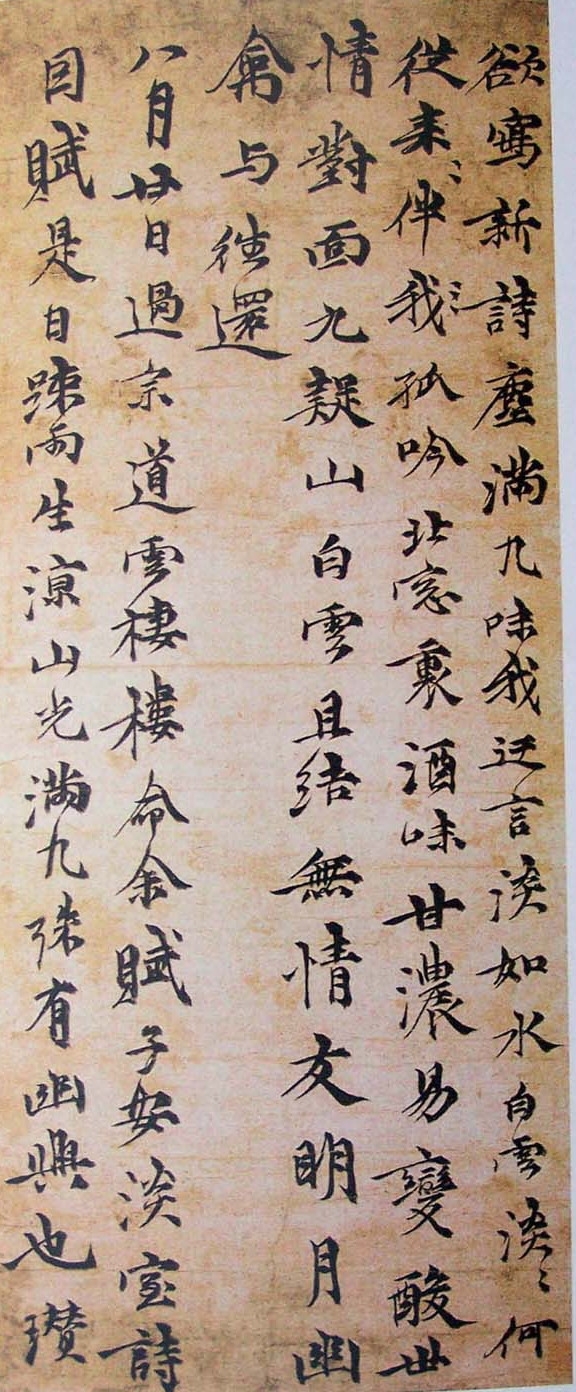 欲寫新詩塵滿几味我迂言淡如水白雲淡〻何
従来〻伴我〻孤吟北窓裏酒味甘濃易變酸世
情對面九疑山白雲且結無情友明月幽
禽与往還
八月廿日過宗道雲棲樓命余賦子安淡室詩
因賦是日踈雨生涼山光滿几殊有幽興也瓚